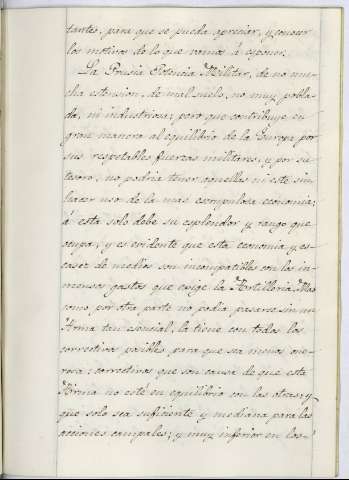 tantes, para que se pueda apreciar, y conocer
los motivos de lo que vamos à esponer.
La Prusia Potencia Militar, de no mu-
cha estension, de mal suelo, no muy pobla-
da, ni industriosa; pero que contribuye en
gran manera al equilibrio de la Europa por
sus respetables fuerzas militares; y por su
tesoro, no podria tener aquellas ni este sin
hacer uso de la mas escrupulosa economia;
á esta solo debe su esplendor y rango que
ocupa; y es evidente que esta economia y es-
casez de medios son incompatibles con los in-
mensos gastos que exige la Artilleria. Mas
como por otra parte no podia pasarse sin un
Arma tan esencial, la tiene con todos los
correctivos posibles, para que sea menos one-
rosa; correctivos que son causa de que esta
Arma no esté en equilibrio con las otras; y
que solo sea suficiente y mediana para las
acciones campales; y muy inferior en los